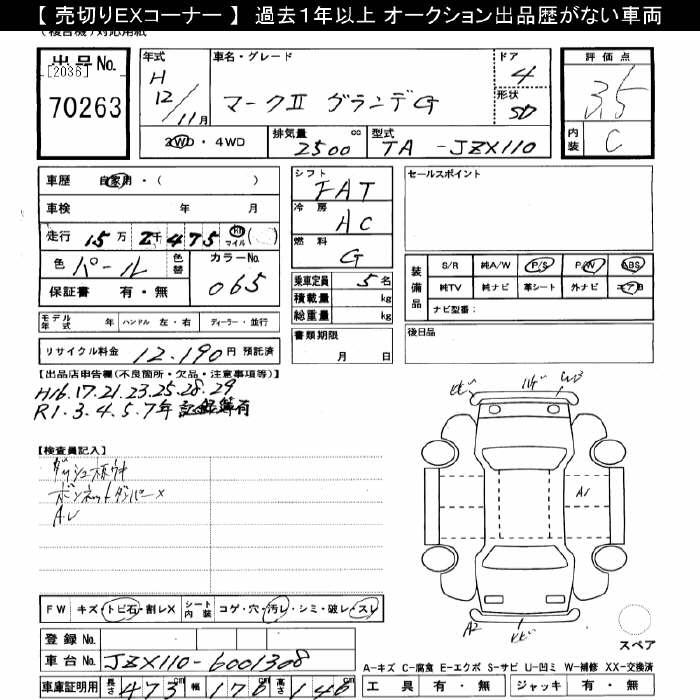 【 売切りEXコーナー 】 過去1年以上 オークション出品歴がない車両
(複合機)対応用紙
出品No.
[2036]
70263
年式
H
12/11月
車名・グレード
マークⅡ グランデG
ドア
4
形状
SD
評価点
3.5
内装
C
2WD・4WD
排気量
2500
cc
型式
TA - JZX110
車歴 自家用・( )
車検 年 月
走行 15万 2千475 km マイル ( )
色 パール
色替
カラーNo.
065
保証書 有・無
モデル年式 年 ハンドル 左・右 ディーラー・並行
リサイクル料金 12.190円 預託済
シフト
FAT
冷房
AC
燃料
G
乗車定員 5名
積載量 kg
総重量 kg
書類期限
月 日
セールスポイント
装備品
S/R 純A/W P/S P/W ABS
純TV 純ナビ 革シート 外ナビ エアB
ナビ型番：
後日品
【出品店申告欄(不良箇所・欠品・注意事項等)】
H16.17.21.23.25.28.29
R1.3.4.5.7年 記録簿有
【検査員記入】
ボンネットダンパー×
FW キズ・トビ石・割レX シート内装 コゲ・穴・汚レ・シミ・破レ・スレ
登録 No.
車台 No. JZX110-6001308
車庫証明用 長さ 473cm 幅 176cm 高さ 146cm
A1
A2
スペア
A-キズ C-腐食 E-エクボ S-サビ U-凹ミ W-補修 XX-交換済
工具 有・無 ジャッキ 有・無